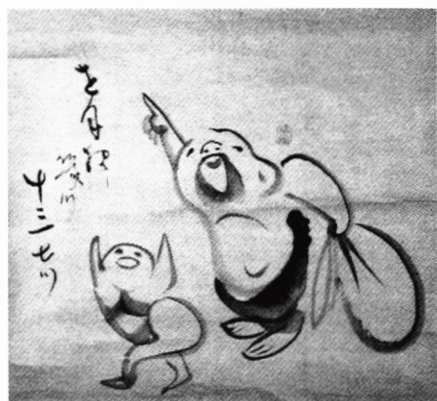 を月様
幾ツ
十三七ツ